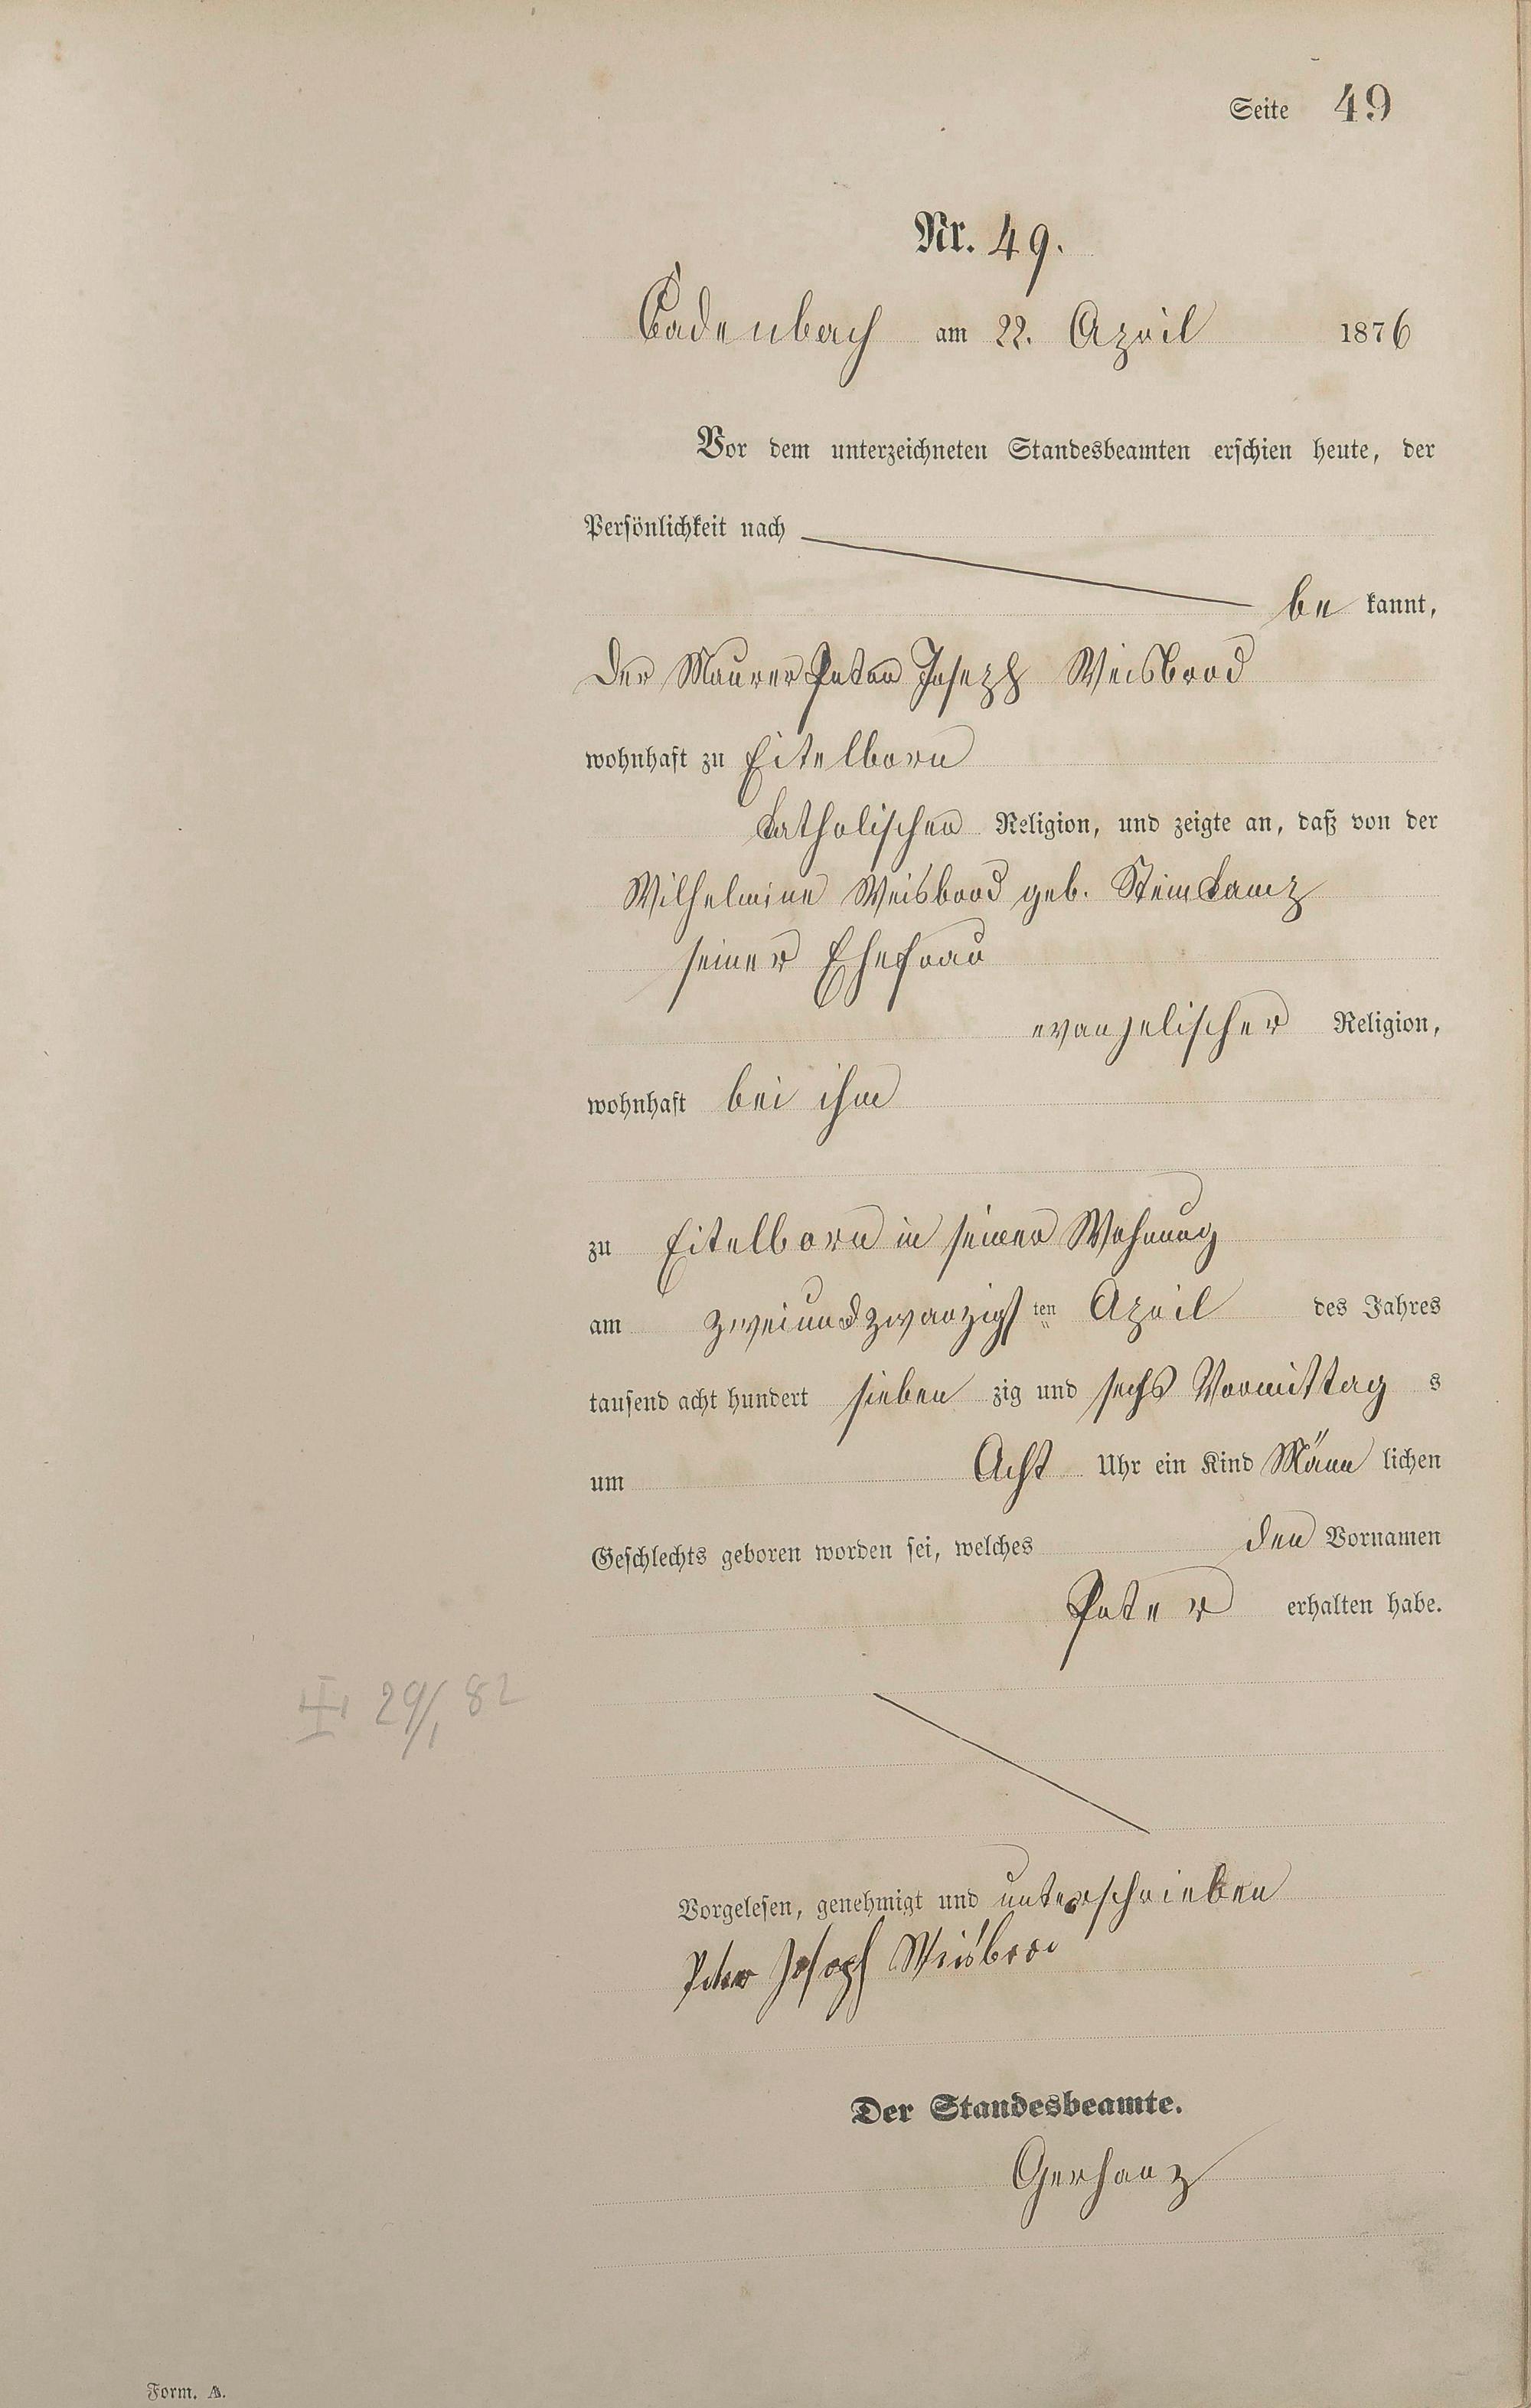 Seite 49
Nr. 49.
Cadenbach am 22. April 1876
Vor dem unterzeichneten Standesbeamten erschien heute, der
Persönlichkeit nach
be kannt,
der Maurer Peter Joseph Weisbrod
wohnhaft zu Eitelborn
katholischer Religion, und zeigte an, daß von der
Wilhelmine Weisbrod geb.
seiner Ehefrau
evangelischer Religion,
wohnhaft bei ihm
zu Eitelborn in seiner Wohnung
am zweiundzwanzigsten April des Jahres
tausend acht hundert sieben zig und sechs Vormittag s
um Acht Uhr ein Kind Männ lichen
Geschlechts geboren worden sei, welches den Vornamen
Peter erhalten habe.
29/1 82
Vorgelesen, genehmigt und unterschrieben
Peter Joseph Weisbrod
Der Standesbeamte.
Gerhanz
Form. A.